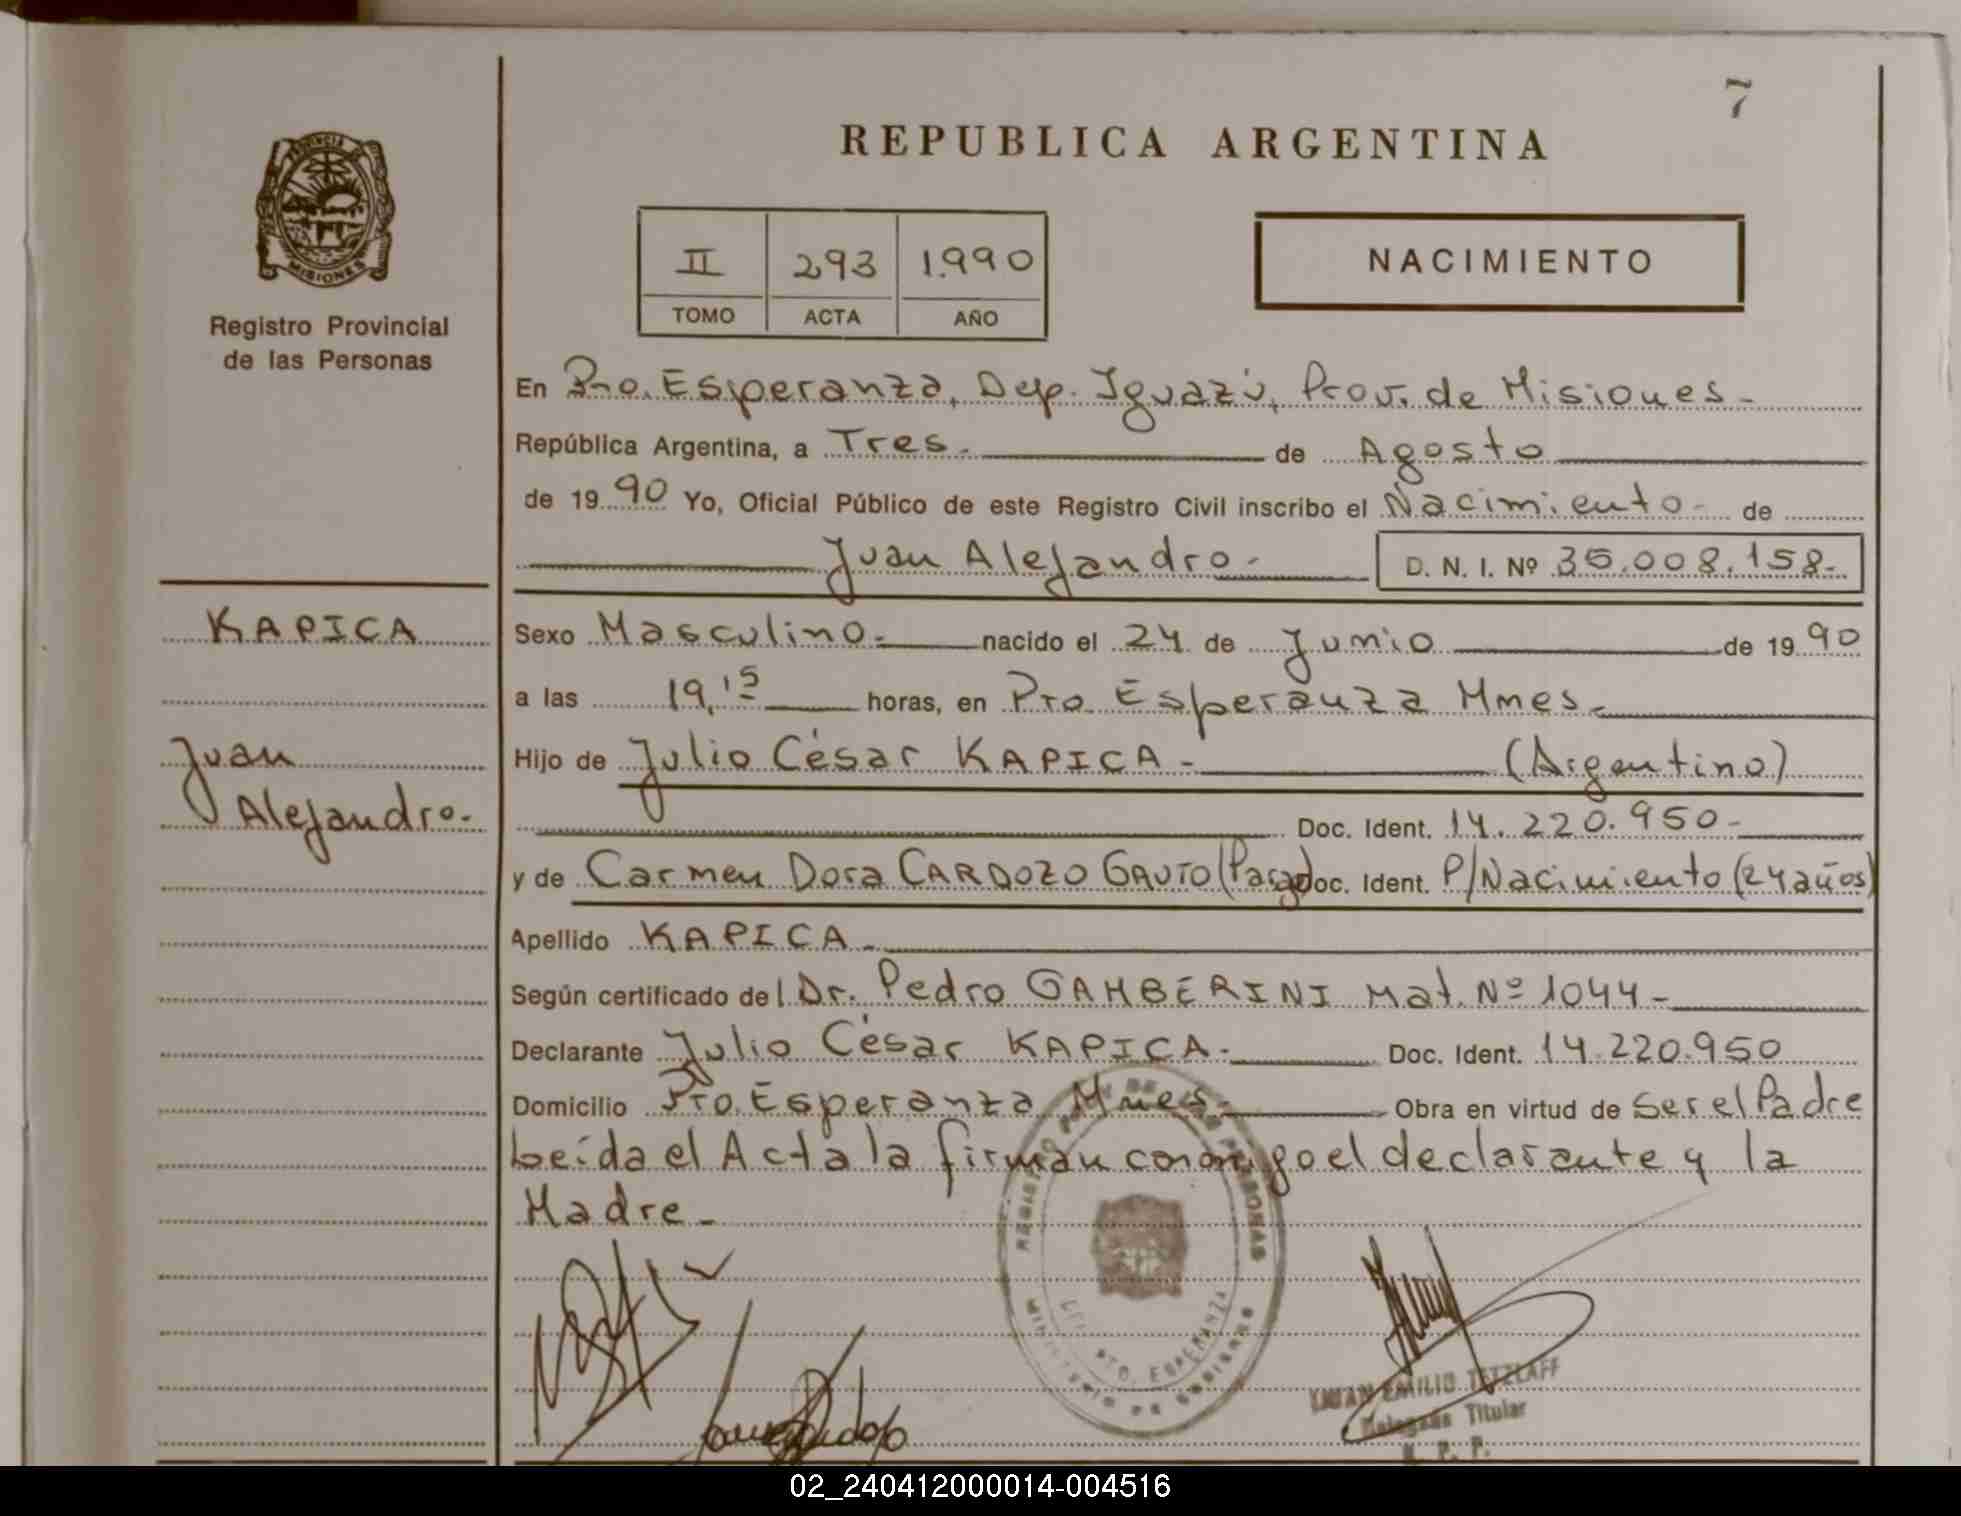 7
REPUBLICA ARGENTINA
PROVINCIA DE
MISIONES
Registro Provincial
de las Personas
II 293 1.990
TOMO ACTA AÑO
NACIMIENTO
En Pto. Esperanza, Dep. Iguazú, Prov. de Misiones-
República Argentina, a Tres.- de Agosto
de 1990 Yo, Oficial Público de este Registro Civil inscribo el Nacimiento- de
Juan Alejandro.- D. N. I. Nº 35.008.158.-
KAPICA
Sexo Masculino.- nacido el 24 de Junio de 1990
a las 19,15 horas, en Pto Esperanza Mnes.-
Juan
Alejandro.-
Hijo de Julio César KAPICA.- (Argentino)
Doc. Ident. 14.220.950-
y de Carmen Dora CARDOZO GAUTO (Parag) Doc. Ident. P/Nacimiento (24 años)
Apellido KAPICA.-
Según certificado del Dr. Pedro GAMBERINI Mat. Nº 1044-
Declarante Julio César KAPICA.- Doc. Ident. 14.220.950
Domicilio Pto. Esperanza Mnes.- Obra en virtud de Ser el Padre
Leída el Acta la firman conmigo el declarante y la
Madre.-
REGISTRO DE LAS PERSONAS
PTO. ESPERANZA
MINISTERIO DE GOBIERNO
EMILIO TETZLAFF
Delegado Titular
R. P. P.
02_240412000014-004516